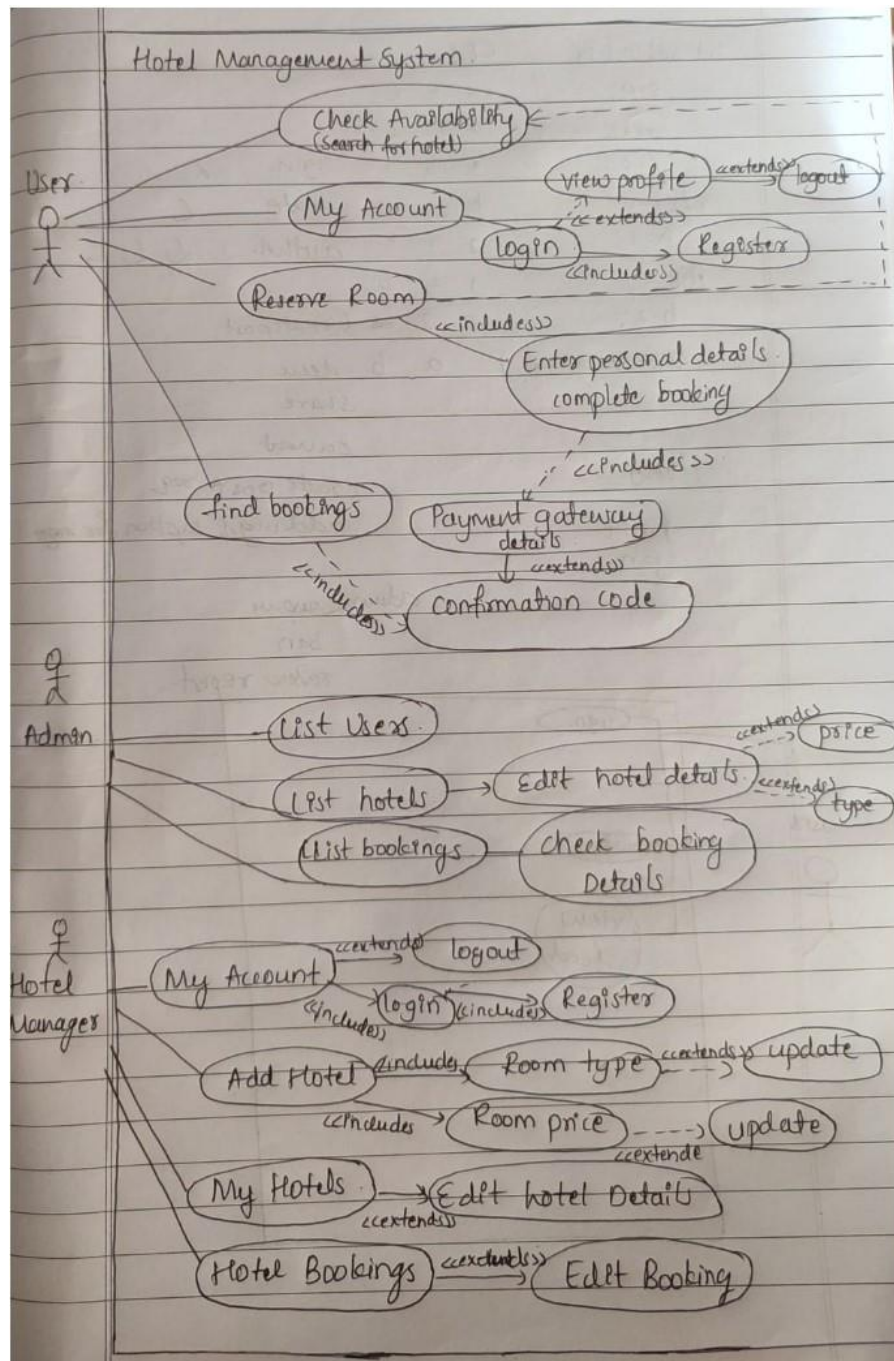 Hotel Management System
Check Availability
(search for hotel)
User
view profile
<<extends>>
logout
My Account
<<extends>>
login
Register
<<includes>>
Reserve Room
<<includes>>
Enter personal details
complete booking
<<includes>>
find bookings
Payment gateway
details
<<extends>>
<<includes>>
confirmation code
Admin
List Users
<<extends>>
price
List hotels
Edit hotel details
<<extends>>
type
List bookings
check booking
Details
Hotel
Manager
My Account
<<extends>>
logout
<<includes>>
login
<<includes>>
Register
Add Hotel
<<includes
Room type
<<extends>>
update
<<includes
Room price
<<extende
update
My Hotels
<<extends>>
Edit hotel Details
Hotel Bookings
<<extends>>
Edit Booking